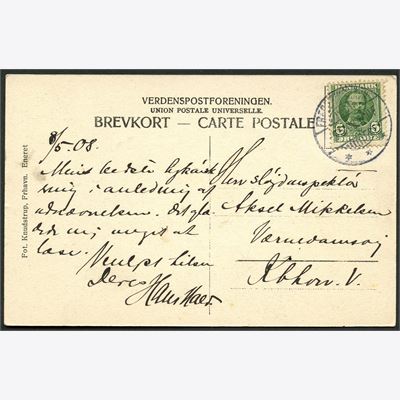 VERDENSPOSTFORENINGEN.
UNION POSTALE UNIVERSELLE.
BREVKORT — CARTE POSTALE
DANMARK
5 5
Fot. Knudstrup, Frhavn. Eneret
8/5.08.
Mine bedste lykønsk
ning i anledning af
udnævnelsen. Det glæ
der mig meget at
læse.
Venligst hilsen
Deres
Hans
Herr Sløjdinspektør
Aksel Mikkelsen
Værnedamsvej
Kbhvn. V.